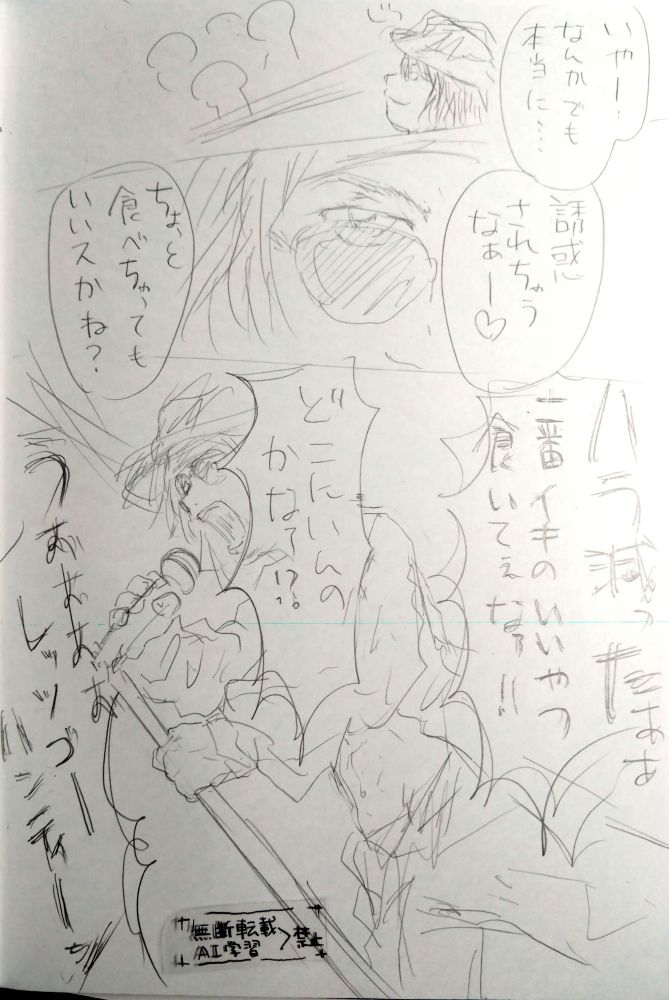 いやー…
なんかでも
本当に…
誘惑
されちゃう
なぁー♡
ちょっと
食べちゃっても
いいスかね？
ハラ減ったぁぁ
一番イキのいいやつ
食いてぇなァ!!
どこにいんの
かなァ!?
うおぉぉぉぉ
レッツゴー
ハンティー
無断転載
AI学習
禁止